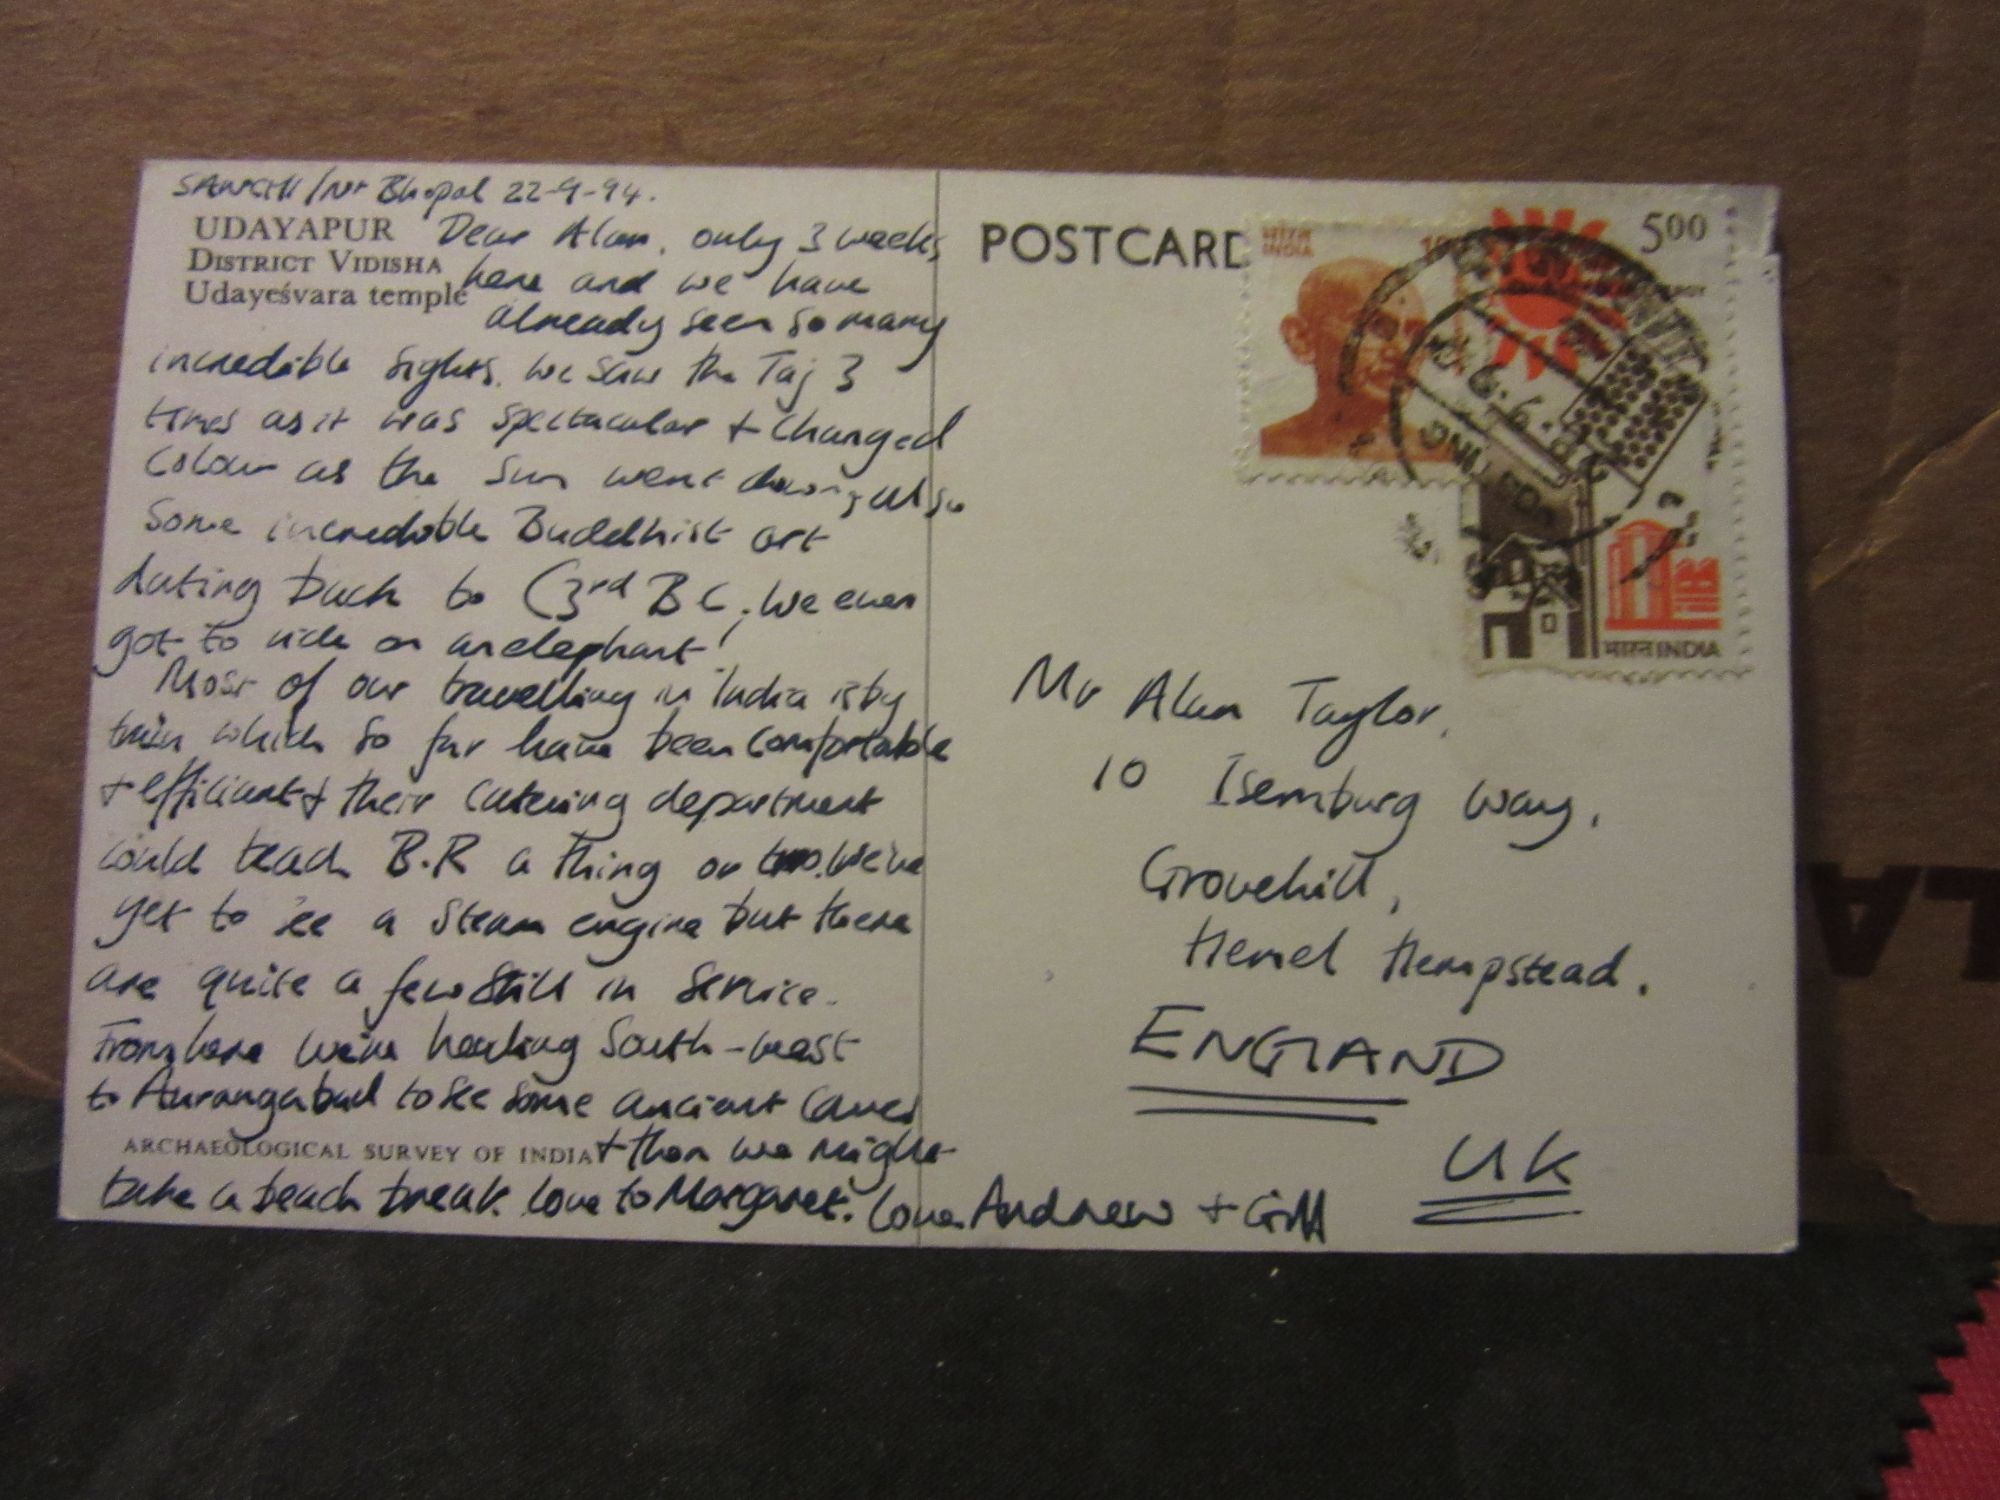 SANCHI / Nr Bhopal 22-9-94.
UDAYAPUR
DISTRICT VIDISHA
Udayeśvara temple
Dear Alan, only 3 weeks
here and we have
already seen so many
incredible sights. We saw the Taj 3
times as it was spectacular + changed
colour as the sun went down, also
some incredible Buddhist art
dating back to C3rd BC, we even
got to ride on an elephant!
Most of our travelling in India is by
train which so far have been comfortable
+ efficient + their catering department
could teach B.R a thing or two. We've
yet to see a steam engine but there
are quite a few still in service.
From here we're heading South-west
to Aurangabad to see some ancient caves
ARCHAEOLOGICAL SURVEY OF INDIA
+ then we might
take a beach break. Love to Margaret. Love Andrew + Gill
POSTCARD
INDIA
500
भारत INDIA
Mr Alan Taylor,
10 Isemburg Way,
Grovehill,
Hemel Hempstead.
ENGLAND
UK